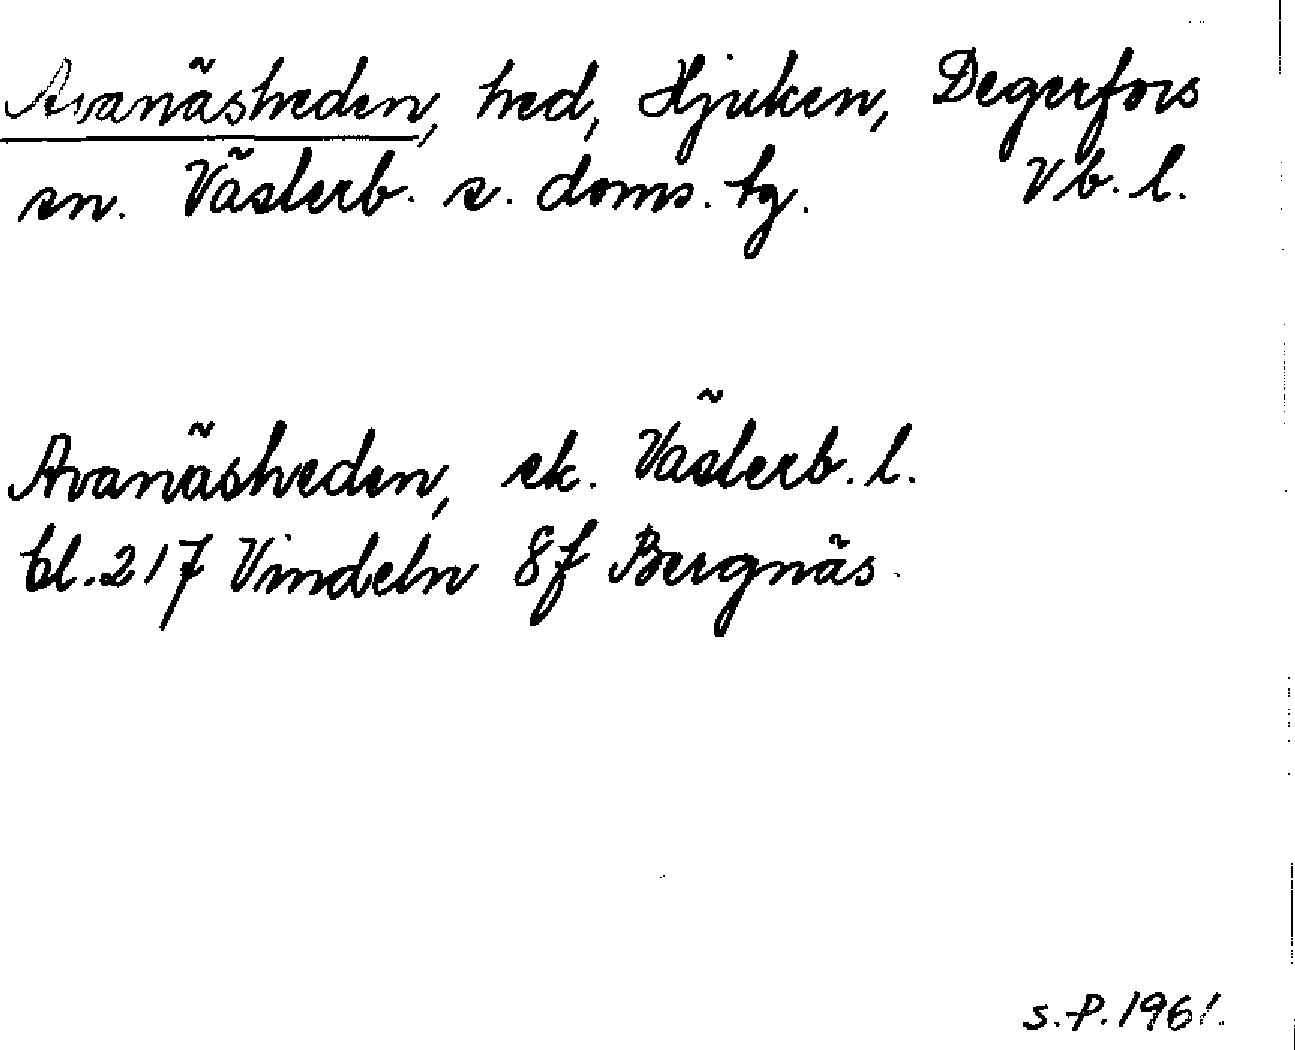 Avanäsheden, hed, Hjuken, Degerfors
sn. Västerb. s. doms. tg. Vb. l.
Avanäsheden, ek. Västerb. l.
bl. 217 Vindeln 8f Bergnäs.
S.P. 1961.